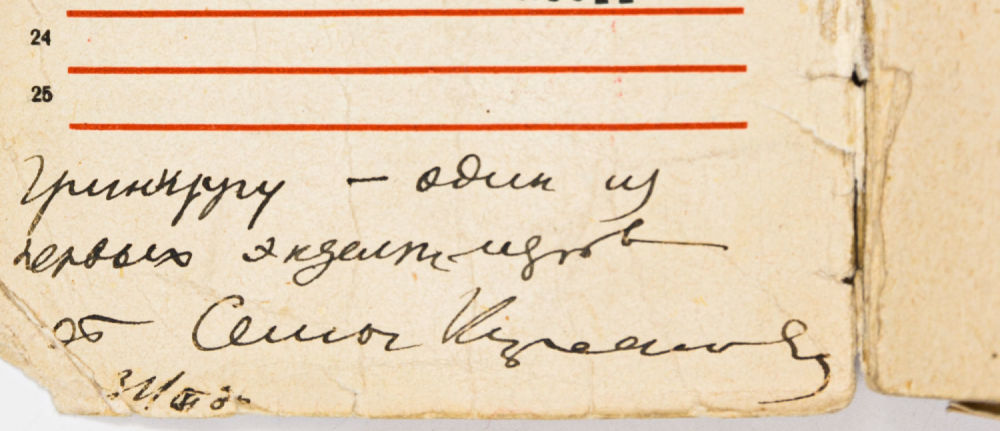 24
25
Гринкругу — один из
первых экземпляров
от Семы Кирсанова